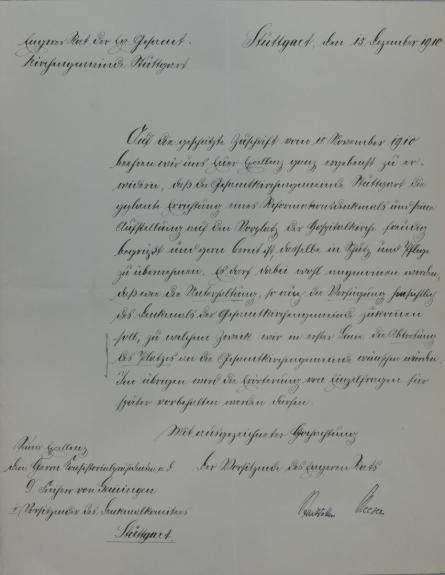 Engerer Rat der Ev. Gesamt-
kirchengemeinde Stuttgart
Stuttgart, den 15. Dezember 1910
Auf die geschätzte Zuschrift vom 18. November 1910
beehren wir uns Euer Exellenz ganz ergebenst zu er-
widern, daß die Gesamtkirchengemeinde Stuttgart die
geplante Errichtung eines Reformationsdenkmals und seine
Aufstellung auf dem Vorplatz der Hospitalkirche freudig
begrüßt und gern bereit ist, dasselbe in Schutz und Pflege
zu übernehmen. Es darf dabei wohl angenommen werden,
daß wie die Unterhaltung, so auch die Verfügung hinsichtlich
des Denkmals der Gesamtkirchengemeinde zukommen
soll, zu welchem Zweck wir in erster Linie die Abtretung
des Platzes an die Gesamtkirchengemeinde wünschen würden.
Im übrigen wird die Erörterung von Einzelfragen für
später vorbehalten werden dürfen.
Mit ausgezeichneter Hochachtung
Der Vorsitzende des Engeren Rats
Seiner Exellenz
dem Herrn Konsistorialpräsidenten a. D.
D. Freiherr von Gemmingen
Vorsitzender des Denkmalkomitees
Stuttgart.